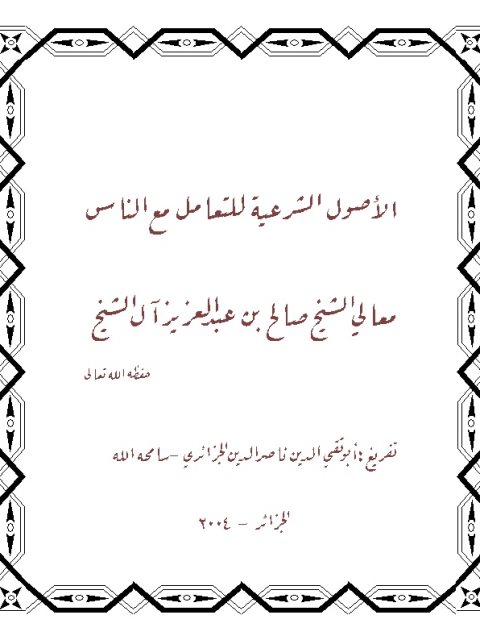 الأصول الشرعية للتعامل مع الناس
معالي الشيخ صالح بن عبد العزيز آل الشيخ
حفظه الله تعالى
تفريغ : أبو تقي الدين ناصر الدين الجزائري – سامحه الله
الجزائر – ٢٠٠٤